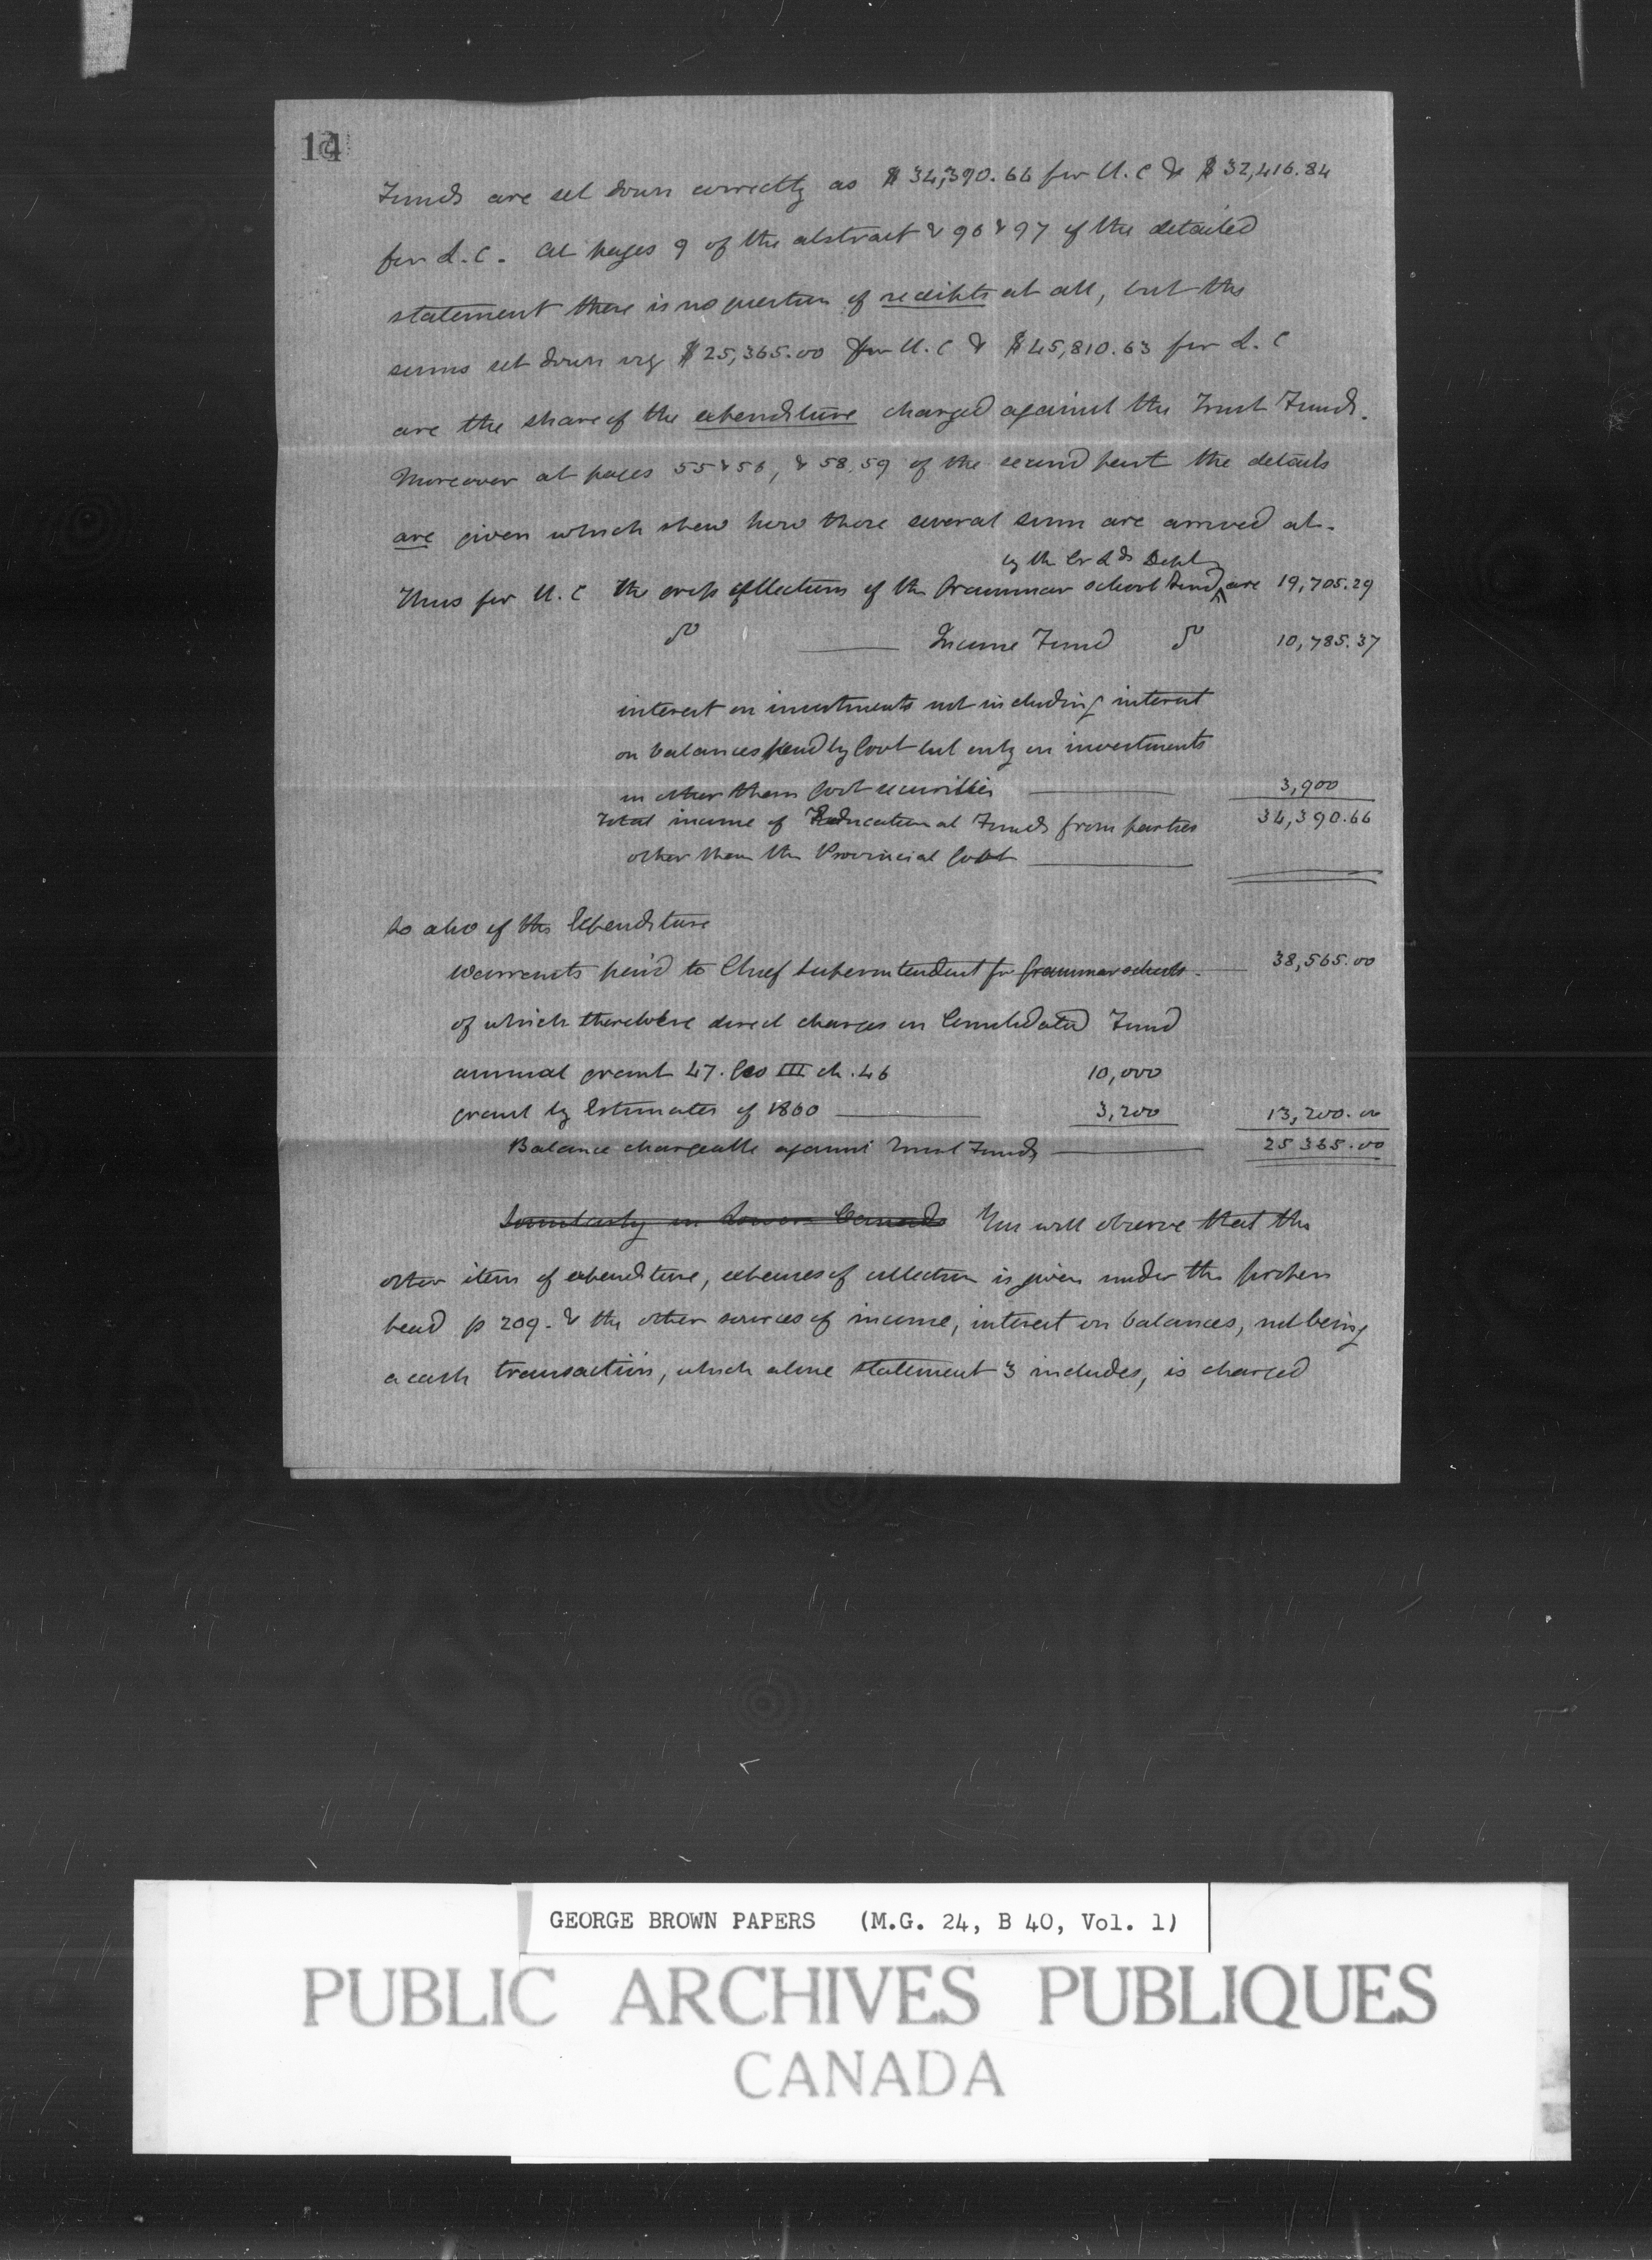 14
Funds are set down correctly as $34,390.66 for U.C & $32,416.84
for L.C. At pages 9 of the abstract & 96 & 97 of the detailed
statement there is no question of receipts at all, but the
sums set down viz $25,365.00 for U.C & $45,810.63 for L.C
are the share of the expenditure charged against the Trust Funds.
Moreover at pages 55 & 56, & 58.59 of the second part the details
are given which shew how these several sum are arrived at.
by the Cr Lds Dept
Thus for U.C the gross collections of the Grammar School Fund are 19,705.29
Do Income Fund Do 10,785.37
interest on investments not including interest
on balances paid by Govt but only on investments
in other than Govt securities 3,900
Total income of Educational Funds from parties 34,390.66
other than the Provincial Govt
So also of the Expenditure
Warrants paid to Chief Superintendent for Grammar schools 38,565.00
of which there were direct charges on Consolidated Fund
annual grant 47. Geo III ch. 46 10,000
grant by Estimates of 1860 3,200 13,200.00
Balance chargeable against Trust Funds 25365.00
Similarly in Lower Canada You will observe that the
other item of expenditure, expenses of collection is given under the proper
head p 209. & the other sources of income, interest on balances, not being
a cash transaction, which alone statement 3 includes, is charged
GEORGE BROWN PAPERS (M.G. 24, B 40, Vol. 1)
PUBLIC ARCHIVES PUBLIQUES
CANADA